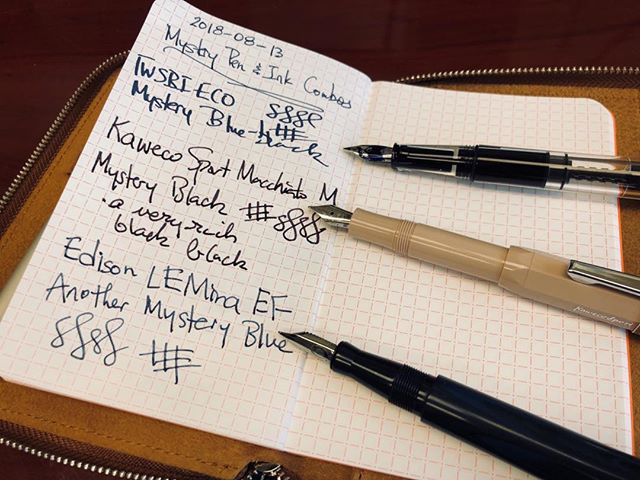 2018-08-13
Mystery Pen & Ink Combos
TWSBI ECO
Mystery Blue-black
Kaweco Sport Macchiato M
Mystery Black
· a very rich
black black
Edison LEMina EF
Another Mystery Blue